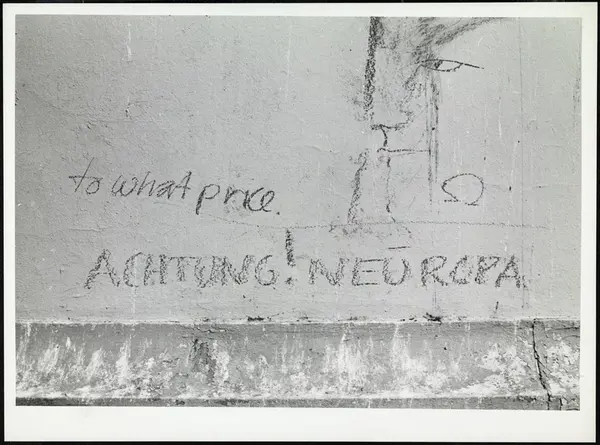 to what price.
Ω
ACHTUNG! NEUROPA